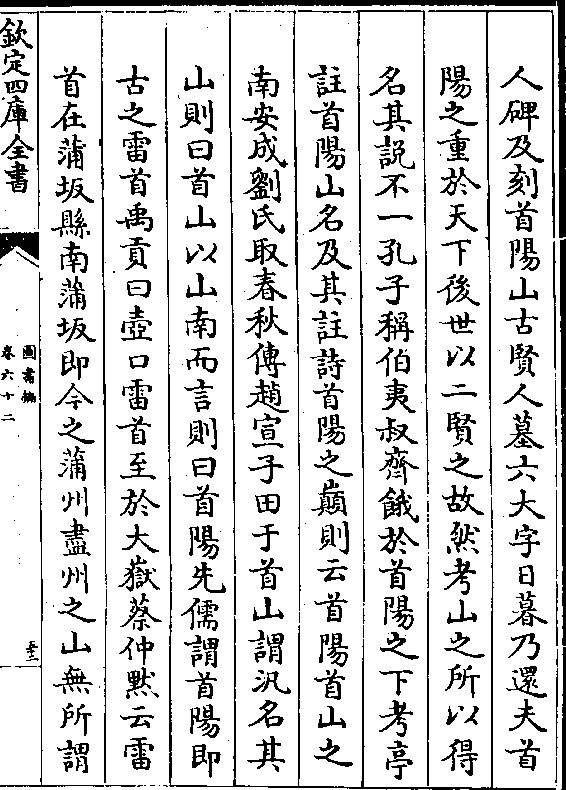 人碑及刻首陽山古賢人墓六大字日暮乃還夫首
陽之重於天下後世以二賢之故然考山之所以得
名其說不一孔子稱伯夷叔齊餓於首陽之下考亭
註首陽山名及其註詩首陽之巔則云首陽首山之
南安成劉氏取春秋傳趙宣子田于首山謂汎名其
山則曰首山以山南而言則曰首陽先儒謂首陽即
古之雷首禹貢曰壺口雷首至於大嶽蔡仲黙云雷
首在蒲坂縣南蒲坂即今之蒲州盡州之山無所謂
欽定四庫全書
圖書編
卷六十二